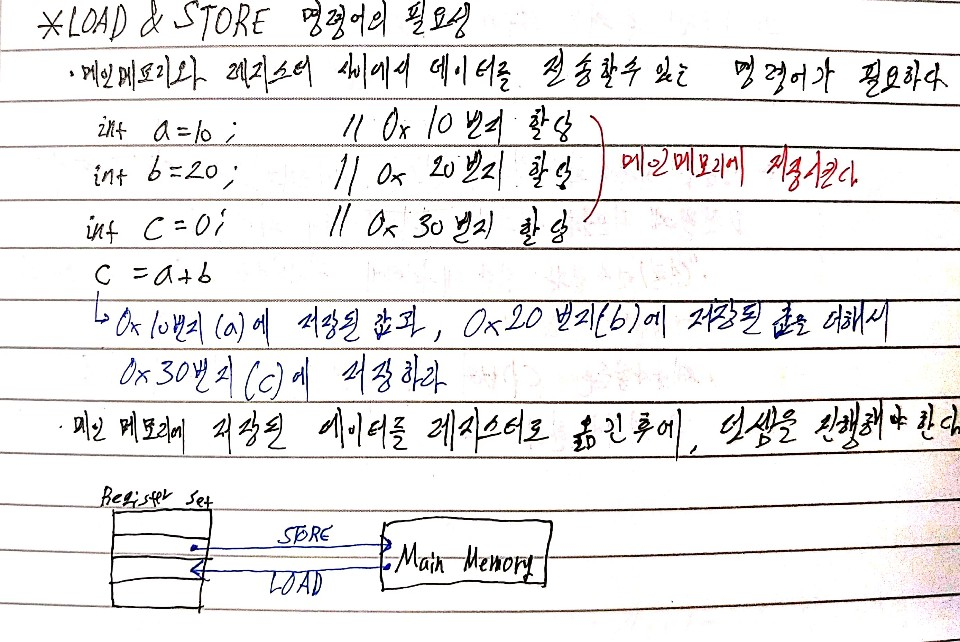 *LOAD & STORE 명령어의 필요성
· 메인메모리와 레지스터 사이에서 데이터를 전송할수 있는 명령어가 필요하다
int a=10; // 0x 10 번지 할당
int b=20; // 0x 20번지 할당 메인메모리에 저장시킨다
int c=0; // 0x 30 번지 할당
c = a+b
↳ 0x10번지 (a)에 저장된 값과, 0x20 번지(b)에 저장된 값을 더해서
0x30번지 (c)에 저장하라
· 메인 메모리에 저장된 데이터를 레지스터로 옮긴후에, 덧셈을 진행해야 한다
Register Set
STORE
Main Memory
LOAD